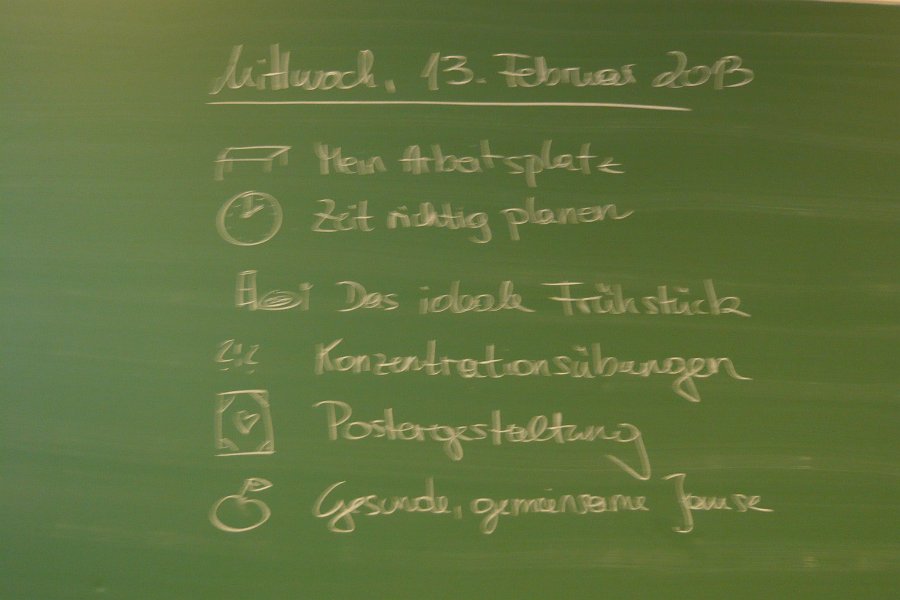 Mittwoch, 13. Februar 2013
Mein Arbeitsplatz
Zeit richtig planen
Das ideale Frühstück
?!? Konzentrationsübungen
Postergestaltung
Gesunde, gemeinsame Jause